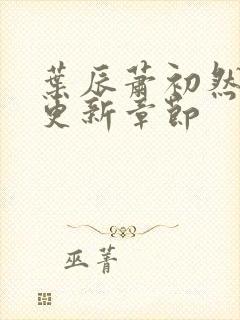 葉辰蕭初然
更新章節
巫菁